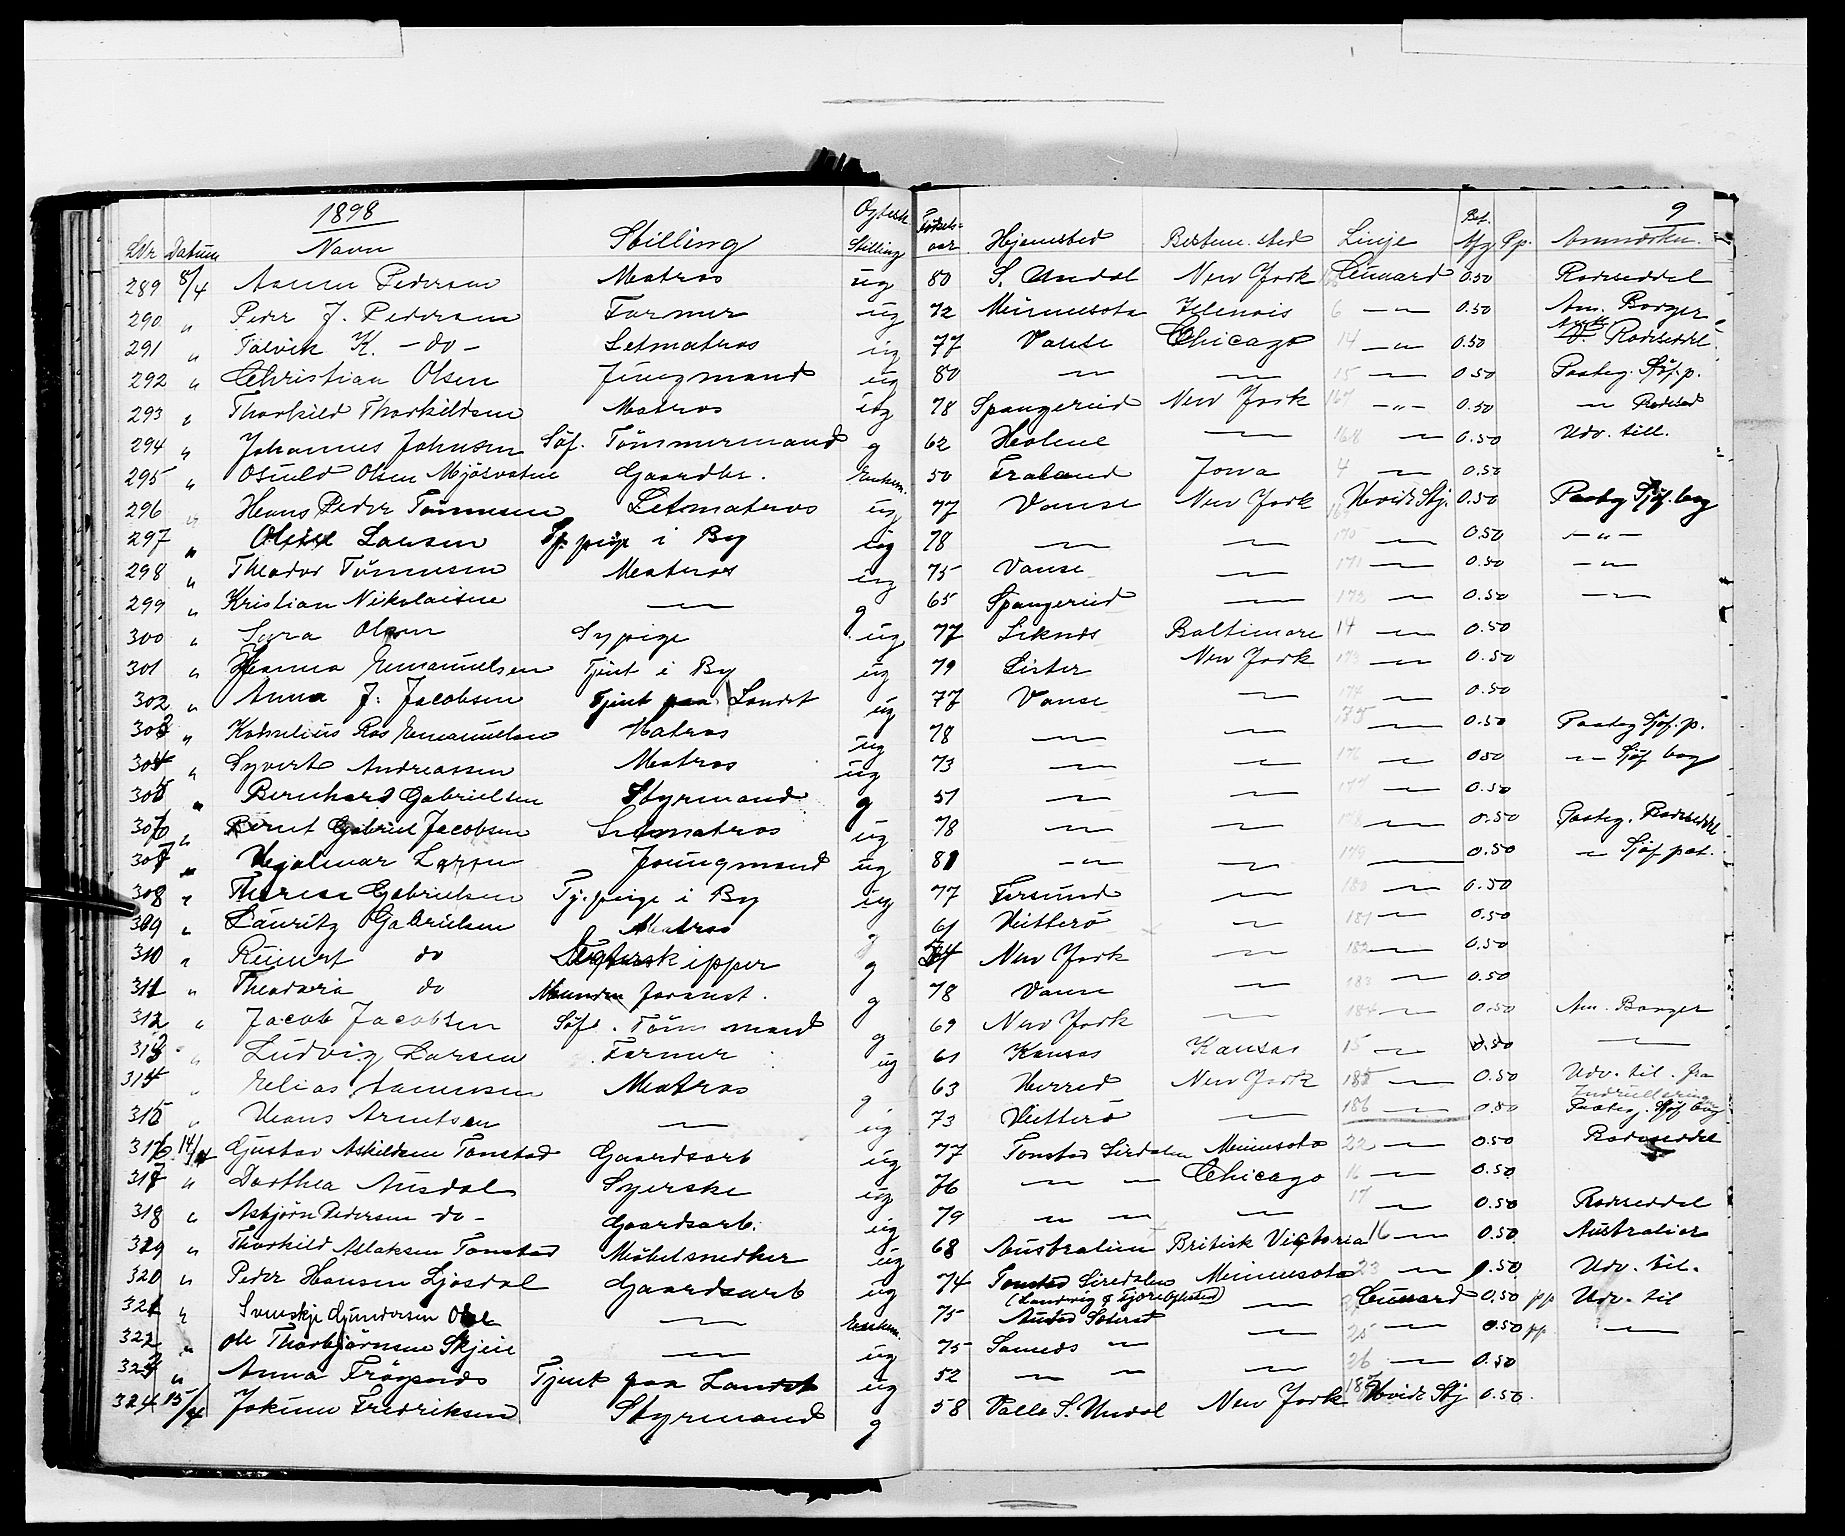 1898 9
Nr Datum Navn Stilling Egtesk. Stilling Födsels-aar Hjemsted Bestem. sted Linje Bet. Afg. Pp. Anmärkn.
289 8/4 Pedersen Matros ug 80 S. Undal New York Cunard 0.50 Rodeseddel
290 " Peder J. Pedersen Farmer ug 72 Minnesota Illenois 6 — " — 0.50 Am. Borger
291 " Talvik K. - do - Letmatros ug 77 Vanse Chicago 14 — " — 0.50 Rodeseddel
292 " Christian Olsen Jungmand ug 80 — " — — " — 15 — " — 0.50 Paateg. Sjöf. p.
293 " Thorkild Thorkildsen Matros ug 78 Spangereid New York 167 — " — 0.50 — " — Rodesed
294 " Johannes Johnsen Söf. Tömmermand g 62 Holme — " — 168 — " — 0.50 Udv. till.
295 " Osuld Olsen Mjösvatne Gaardbr. Enkem. 50 Fraland Jowa 4 — " — 0.50
296 " Hans Peder Tönnesen Letmatros ug 77 Vanse New York Hvide Stj. 0.50 Paateg Sjöf. bog
297 " Larsen Tj. pige i By ug 78 — " — — " — 170 — " — 0.50 — " —
298 " Theodor Tönnesen Matros ug 75 Vanse — " — 171 — " — 0.50 — " —
299 " Kristian Nikolaisen — " — g 65 Spangereid — " — 172 — " — 0.50 — " —
300 " Syra Olsen Sypige ug 77 Liknes Baltimore 14 — " — 0.50
301 " Hanna Emanuelsen Tjent i By ug 79 Lister New York 173 — " — 0.50
302 " Anna J. Jacobsen Tjent paa Landet ug 77 Vanse — " — 174 — " — 0.50
303 " Kornelius Ros Emanuelsen Matros ug 78 — " — — " — 175 — " — 0.50 Paateg Sjöf. p.
304 " Syvert Andreassen Matros ug 73 — " — — " — 176 — " — 0.50 — " — Sjöf bog
305 " Bernhard Gabrielsen Styrmand g 51 — " — — " — 177 — " — 0.50
306 " Bernt Gabriel Jacobsen Letmatros ug 78 — " — — " — 178 — " — 0.50 Paateg. Rodeseddel
307 " Hjalmar Larsen Joungmand ug 81 — " — — " — 179 — 0.50 — " — Sjöf. pat.
308 " Therese Gabrielsen Tj. pige i By ug 77 Farsund — " — 180 — " — 0.50
309 " Lauritz Gabrielsen Matros g 61 Hitterö — " — 181 — " — 0.50
310 " do skipper g New York — " — 182 — " — 0.50
311 " Theodora do g 78 Vanse — " — 183 — " — 0.50
312 " Jacob Jacobsen Söf. Töm mand g 69 New York — " — 184 — " — 0.50 Am. Borger
313 " Ludvig Larsen Farmer ug 61 Kansas Kansas 15 — " — 0.50 — " —
314 " Elias Matros g 63 Herred New York 185 — " — 0.50 Udv. til. fra Indrulleringen
315 " Hans Arntsen — " — ug 73 Hitterö — " — 186 — " — 0.50 Paateg. Sjöf bog
316 14/4 Gustav Askildsen Tonstad Gaardsarb ug 77 Tonstad Sirdalen Minnesota 22 — " — 0.50 Rodeseddel
317 " Dorthea Ausdal Syerske ug 76 — " — — " — Chicago 16 — " — 0.50
318 " Asbjörn Pedersen - do - Gaardsarb. ug 79 — " — — " — — " — 17 — " — 0.50 Rodeseddel
319 " Thorkild Aslaksen Tonstad Möbelsnedker ug 68 Australien Britisk Victoria 16 — " — 0.50 Australier
320 " Peder Hansen Ljosdal Gaardsarb ug 74 Tonstad Siredalen Minnesota 23 — " — 0.50 Udv. til.
321 " Gundersen — " — Enkem. 75 — " — Cunard 0.50 pp Udv. til
322 " Ole Thorbjörnsen Skjeie — " — ug 75 — " — — " — 25 — " — 0.50 pp. — " —
323 " Anna Tjent paa Landet ug 52 — " — — " — — " — 26 — " — 0.50
324 15/4 Jokum Fredriksen Styrmand g 58 Valle S. Undal New York 187 Hvide Stj 0.50.